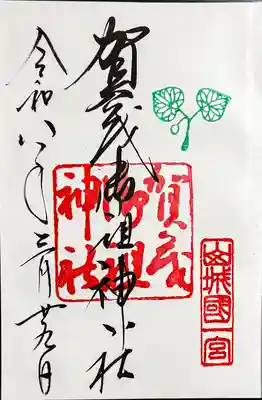 山城國一宮
賀茂御祖神社
賀茂
御祖
神社
令和八年三月廿九日